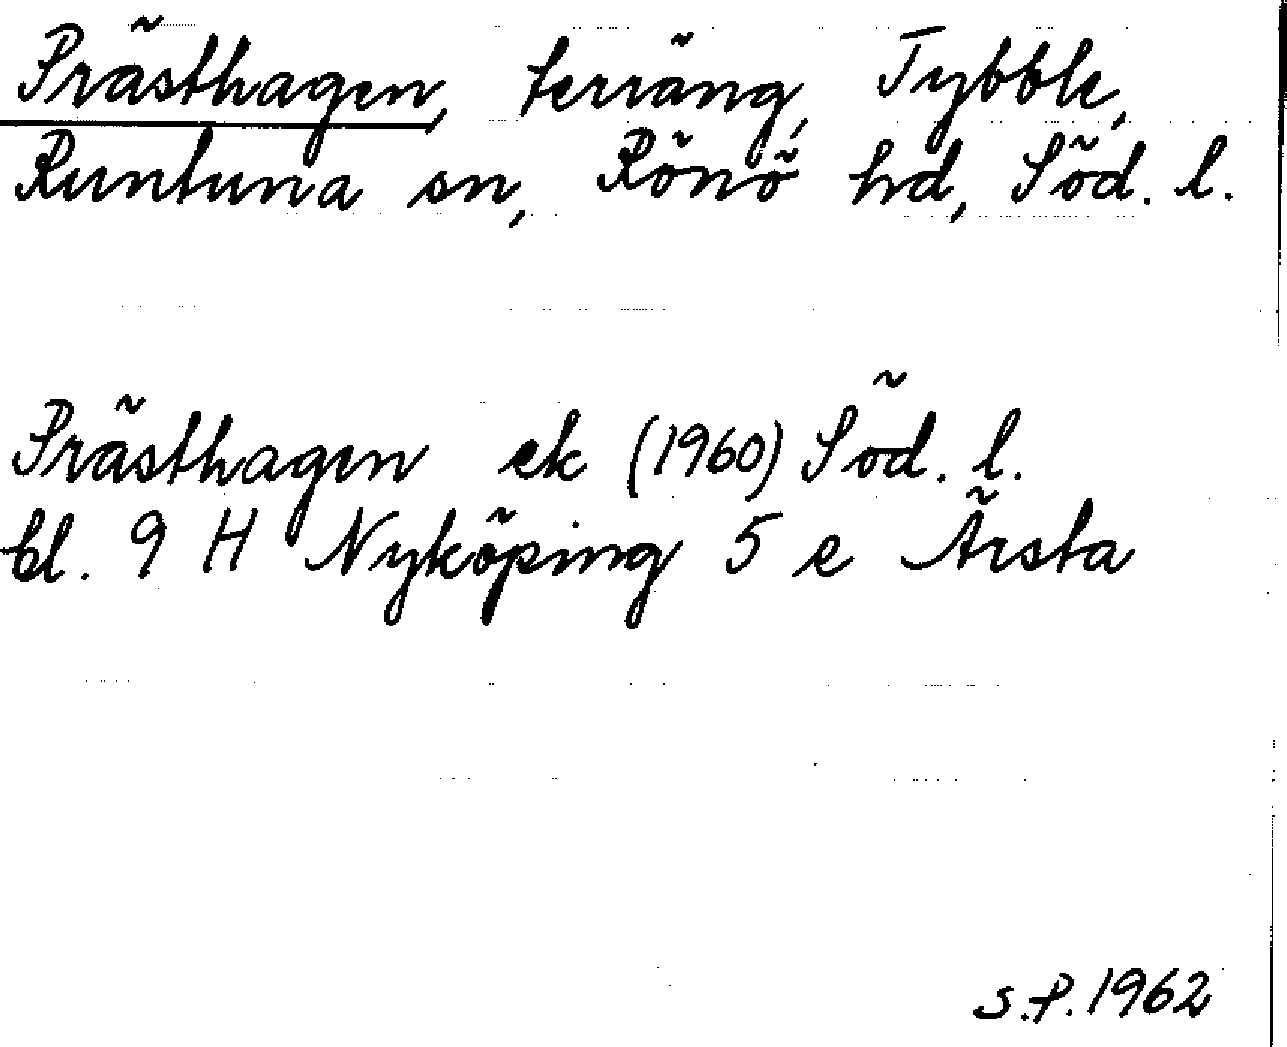 Prästhagen, terräng, Tybble,
Runtuna sn, Rönö hd, Söd. l.
Prästhagen ek (1960) Söd. l.
bl. 9 H Nyköping 5 e Ärsta
S.P. 1962